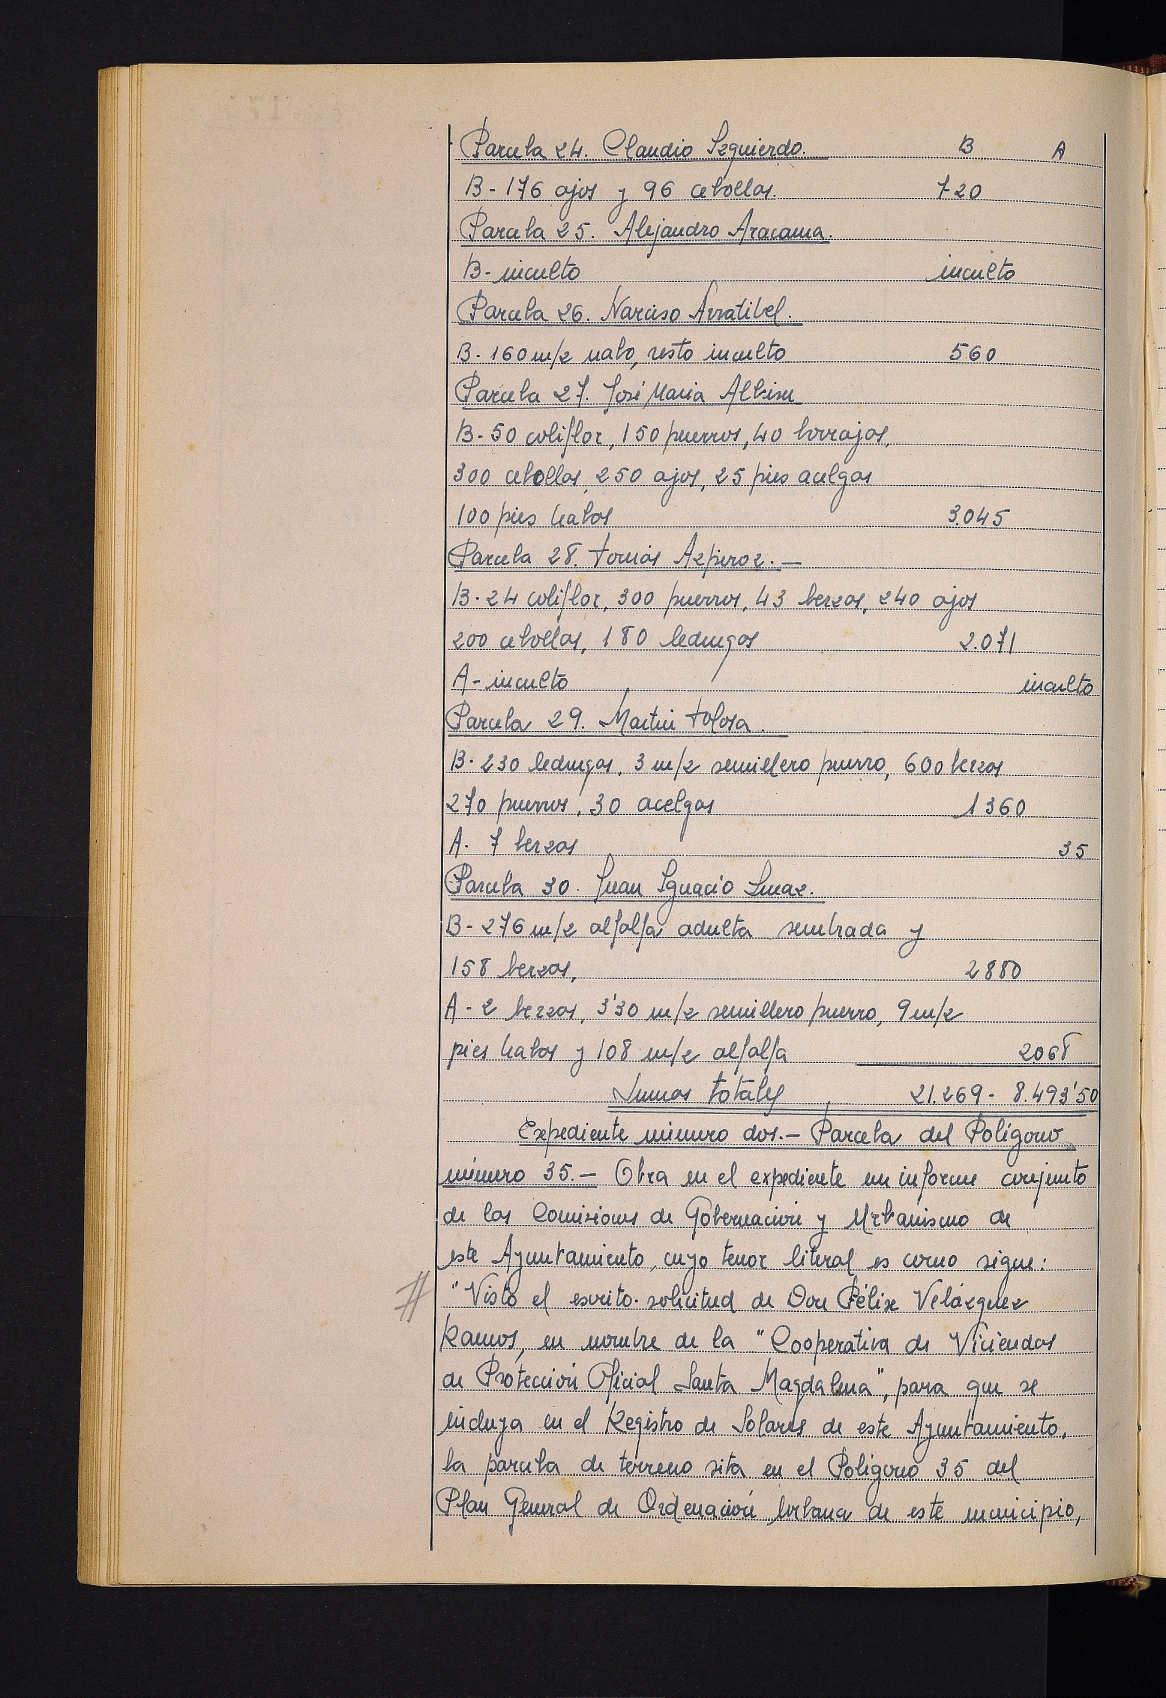 Parcela 24. Claudio Izquierdo. B A
B- 176 ajos y 96 cebollas. 720
Parcela 25. Alejandro Aracama.
B- inculto inculto
Parcela 26. Narciso Arratibel.
B- 160 m/2 nabo, resto inculto 560
Parcela 27. José Maria Albisu
B- 50 coliflor, 150 puerros, 40 borrajas,
300 cebollas, 250 ajos, 25 pies acelgas
100 pies habas 3.045
Parcela 28. Tomás Azpiroz.—
B- 24 coliflor, 300 puerros, 43 berzas, 240 ajos
200 cebollas, 180 lechugas 2.071
A- inculto inculto
Parcela 29. Martin Tolosa.
B- 230 lechugas, 3 m/2 semillero puerro, 600 berzas
270 puerros, 30 acelgas 1360
A- 7 berzas 35
Parcela 30. Juan Ignacio
B- 276 m/2 alfalfa adulta sembrada y
158 berzas, 2880
A- 2 berzas, 3'30 m/2 semillero puerro, 9 m/2
pies habas y 108 m/2 alfalfa 2068
Sumas totales 21.269- 8.493'50
Expediente número dos.— Parcela del Polígono
número 35.— Obra en el expediente un informe conjunto
de las Comisiones de Gobernación y Urbanismo de
este Ayuntamiento, cuyo tenor literal es como sigue:
# "Visto el escrito-solicitud de Don Félix Velázquez
Ramos, en nombre de la "Cooperativa de Viviendas
de Protección Oficial Santa Magdalena", para que se
incluya en el Registro de Solares de este Ayuntamiento,
la parcela de terreno sita en el Polígono 35 del
Plan General de Ordenación Urbana de este municipio,